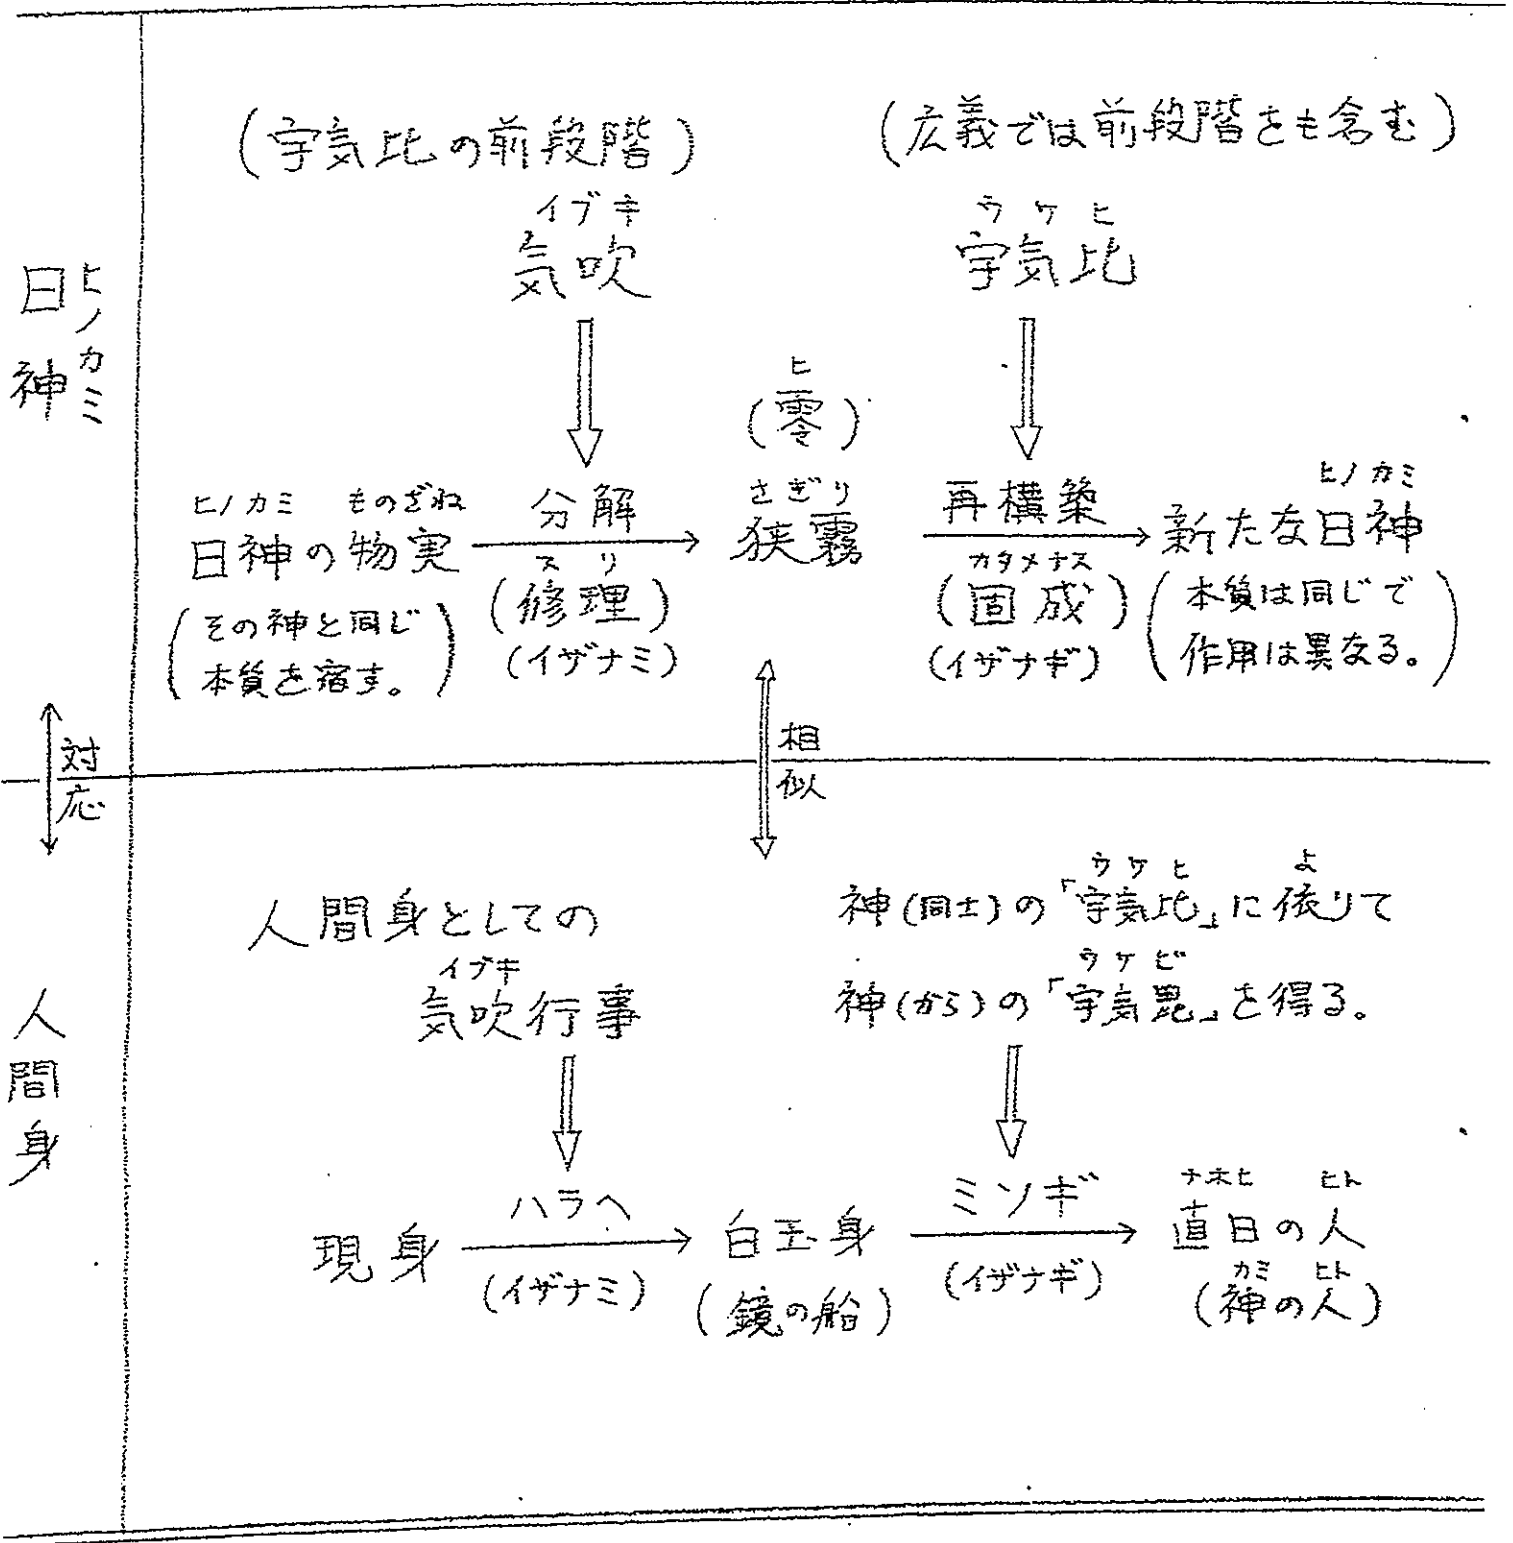 (宇気比の前段階)
(広義では前段階をも含む)
イブキ
気吹
ウケヒ
宇気比
ヒノカミ
日神
ヒ
(零)
ヒノカミ ものざね
日神の物実
(その神と同じ
本質を宿す。)
分解
スリ
(修理)
(イザナミ)
さぎり
狭霧
再構築
カタメナス
(固成)
(イザナギ)
ヒノカミ
新たな日神
(本質は同じで
作用は異なる。)
対応
相似
人間身
人間身としての
イブキ
気吹行事
ウケヒ よ
神(同士)の「宇気比」に依りて
ウケビ
神(から)の「宇気毘」を得る。
現身
ハラヘ
(イザナミ)
白玉身
(鏡の船)
ミソギ
(イザナギ)
ナホヒ ヒト
直日の人
カミ ヒト
(神の人)